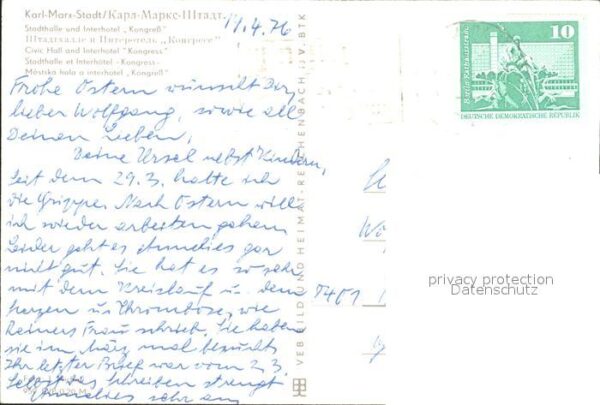 Karl-Marx-Stadt/Карл-Маркс-Штадт
Stadthalle und Interhotel „Kongreß"
Штадтхалле и Интеротель „Конгресс"
Civic Hall and Interhotel "Kongress"
Stadthalle et Interhôtel «Kongress»
Městská hala a interhotel „Kongreß"
11.4.76
Frohe Ostern wünscht Dir,
lieber Wolfgang, sowie all
Deinen Lieben,
Deine Ursel nebst Kindern,
Seit dem 29.3. hatte ich
die Grippe. Nach Ostern will
ich wieder arbeiten gehen.
Leider geht es Annelies gar
nicht gut. Sie hat es so sehr
mit dem Kreislauf u. dem
Herzen u. Thrombose, wie
Reiners Frau schrieb. Sie haben
sie im März mal besucht.
Ihr letzter Brief war vom 2.3.
Selbst das Schreiben strengt
Annelies sehr an
VEB BILD UND HEIMAT REICHENBACH I. V. BTK
10
Berlin, Rathausstraße
DEUTSCHE DEMOKRATISCHE REPUBLIK
5401
privacy protection
Datenschutz